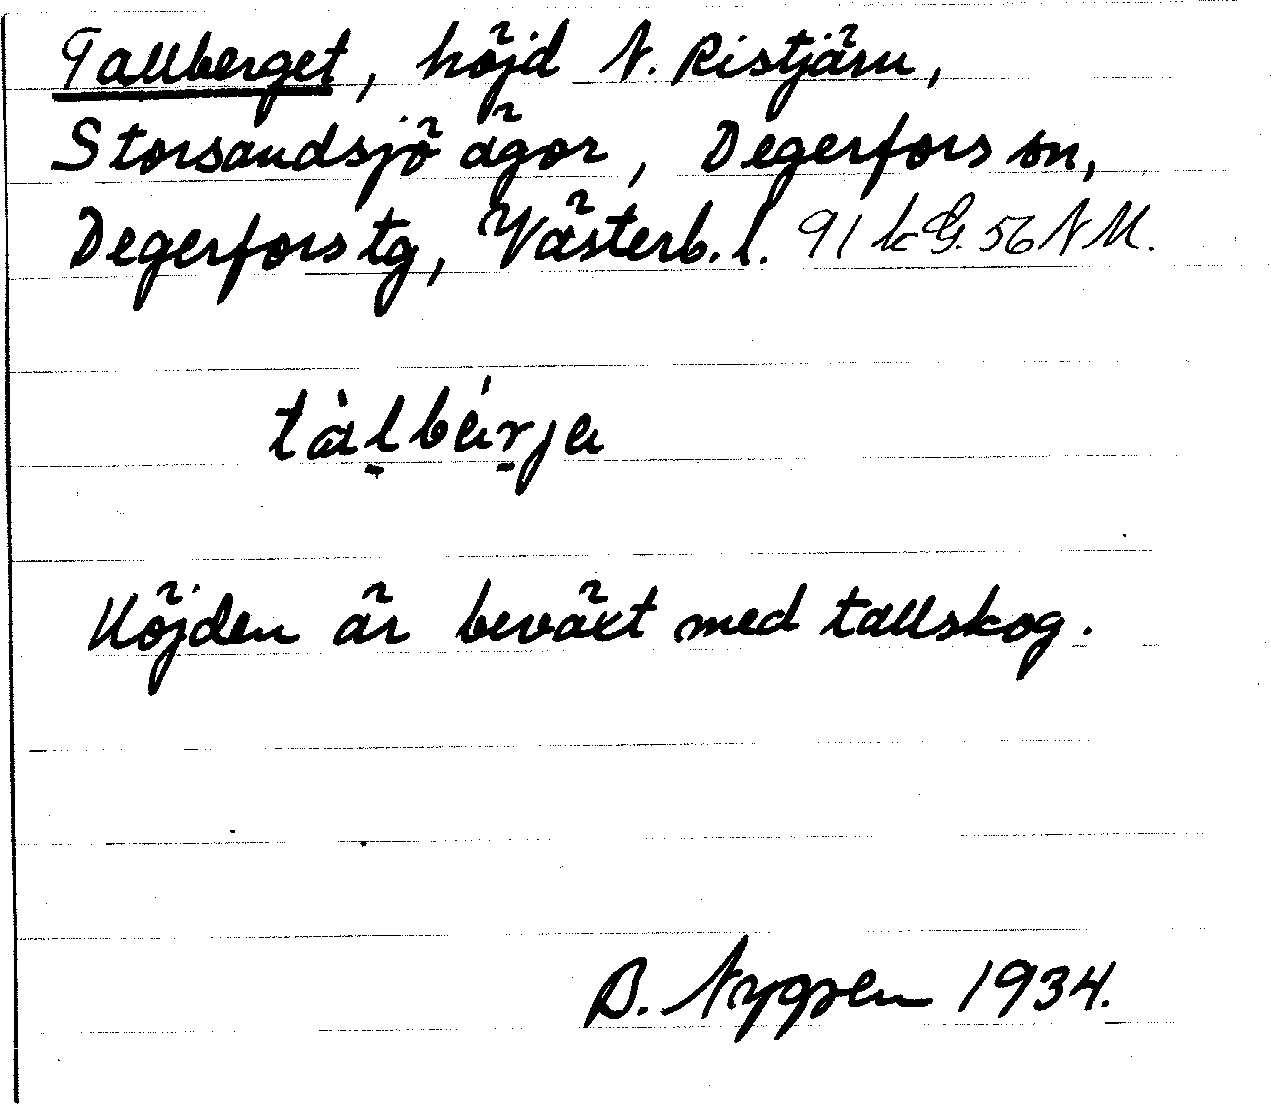 Tallberget, höjd N. Ristjärn,
Storsandsjö ägor, Degerfors sn,
Degerfors tg, Västerb. l. 91 k G. 56 N M.
tàl̠bár̠ja
Höjden är beväxt med tallskog.
B. Nygren 1934.